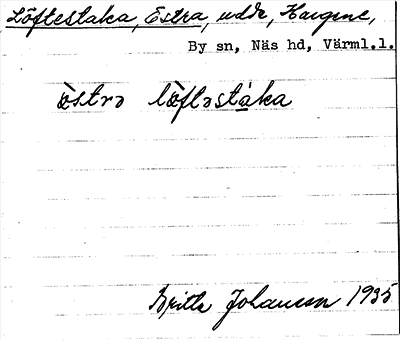 Löftestaka, Estra, udde, Hargene,
By sn, Näs hd, Värml.l.
òstrə lòftəstàka
Britta Johansson 1935